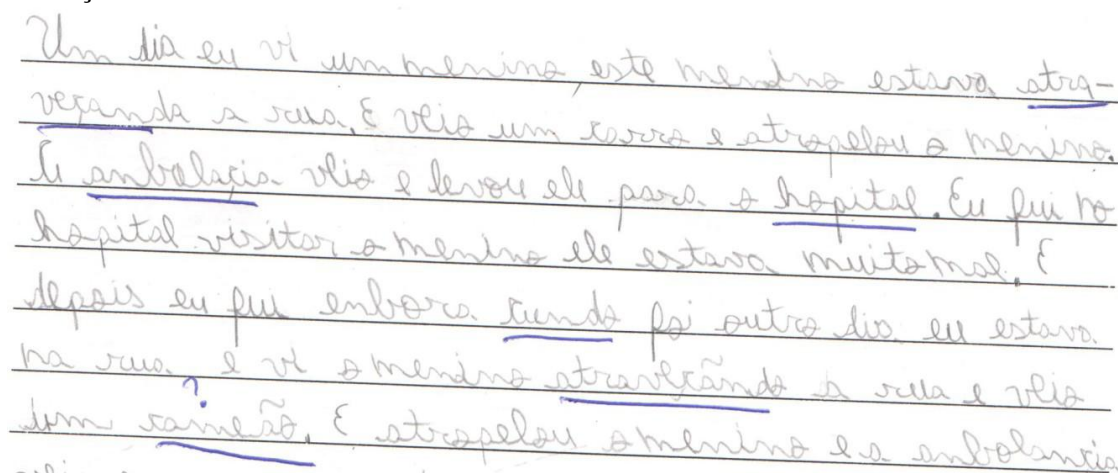 Um dia eu vi um menino, este menino estava atra-
veçando a rua. E veio um carro e atropelou o menino.
A anbolacia veio e levou ele para o hopital. Eu fui no
hopital visitar o menino ele estava muito mal. E
depois eu fui enbora cundo foi outro dia eu estava
na rua e vi o menino atraveçãndo a rua e veio
?
um cameão. E atropelou o menino e a anbolancia